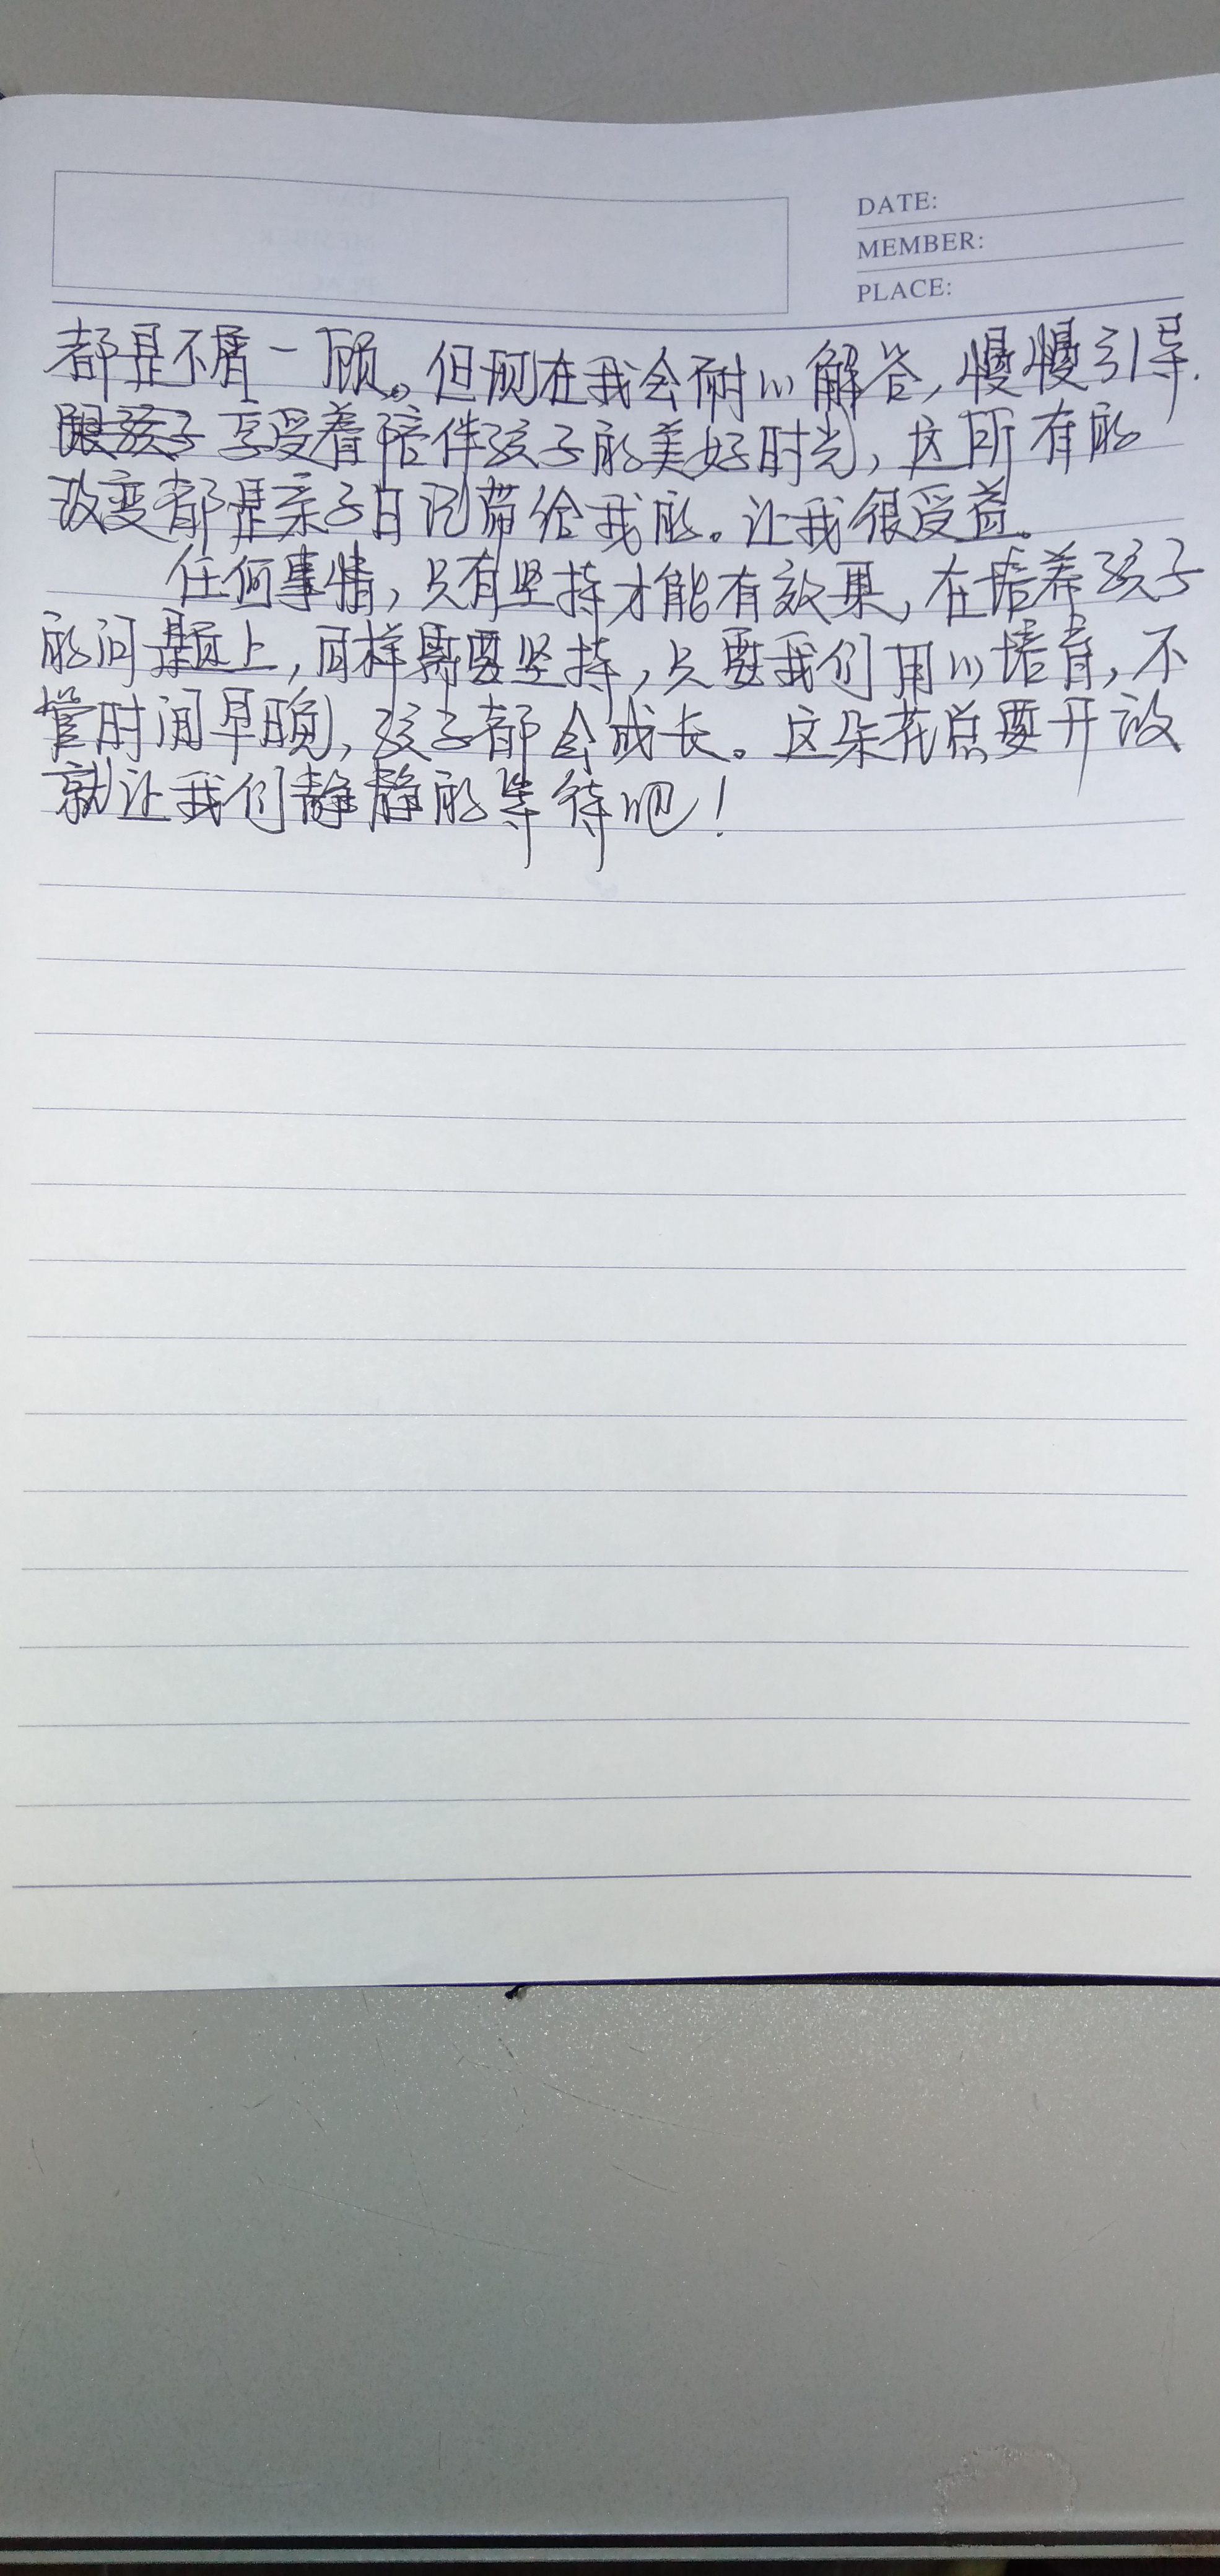 DATE:
MEMBER:
PLACE:
都是不屑一顾。但现在我会耐心解答，慢慢引导.
享受着陪伴孩子的美好时光，这所有的
改变都是亲子日记带给我的。让我很受益。
任何事情，只有坚持才能有效果，在培养孩子
的问题上，同样需要坚持，只要我们用心培育，不
管时间早晚，孩子都会成长。这朵花总要开放
就让我们静静的等待吧！